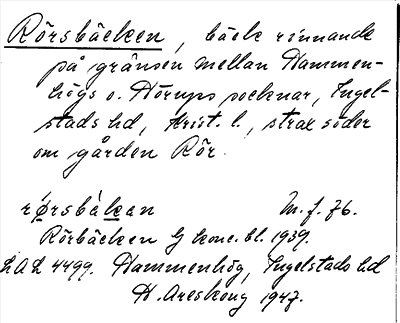 Rörsbäcken, bäck rinnande
på gränsen mellan Hammen-
högs o. Hörups socknar, Ingel-
stads hd, Krist. l., strax söder
om gården Rör.
rørsbäkan M. f. 76.
Rörbäcken G konc. bl. 1939.
LAL 4499. Hammenhög, Ingelstads hd
H. Areskoug 1947.